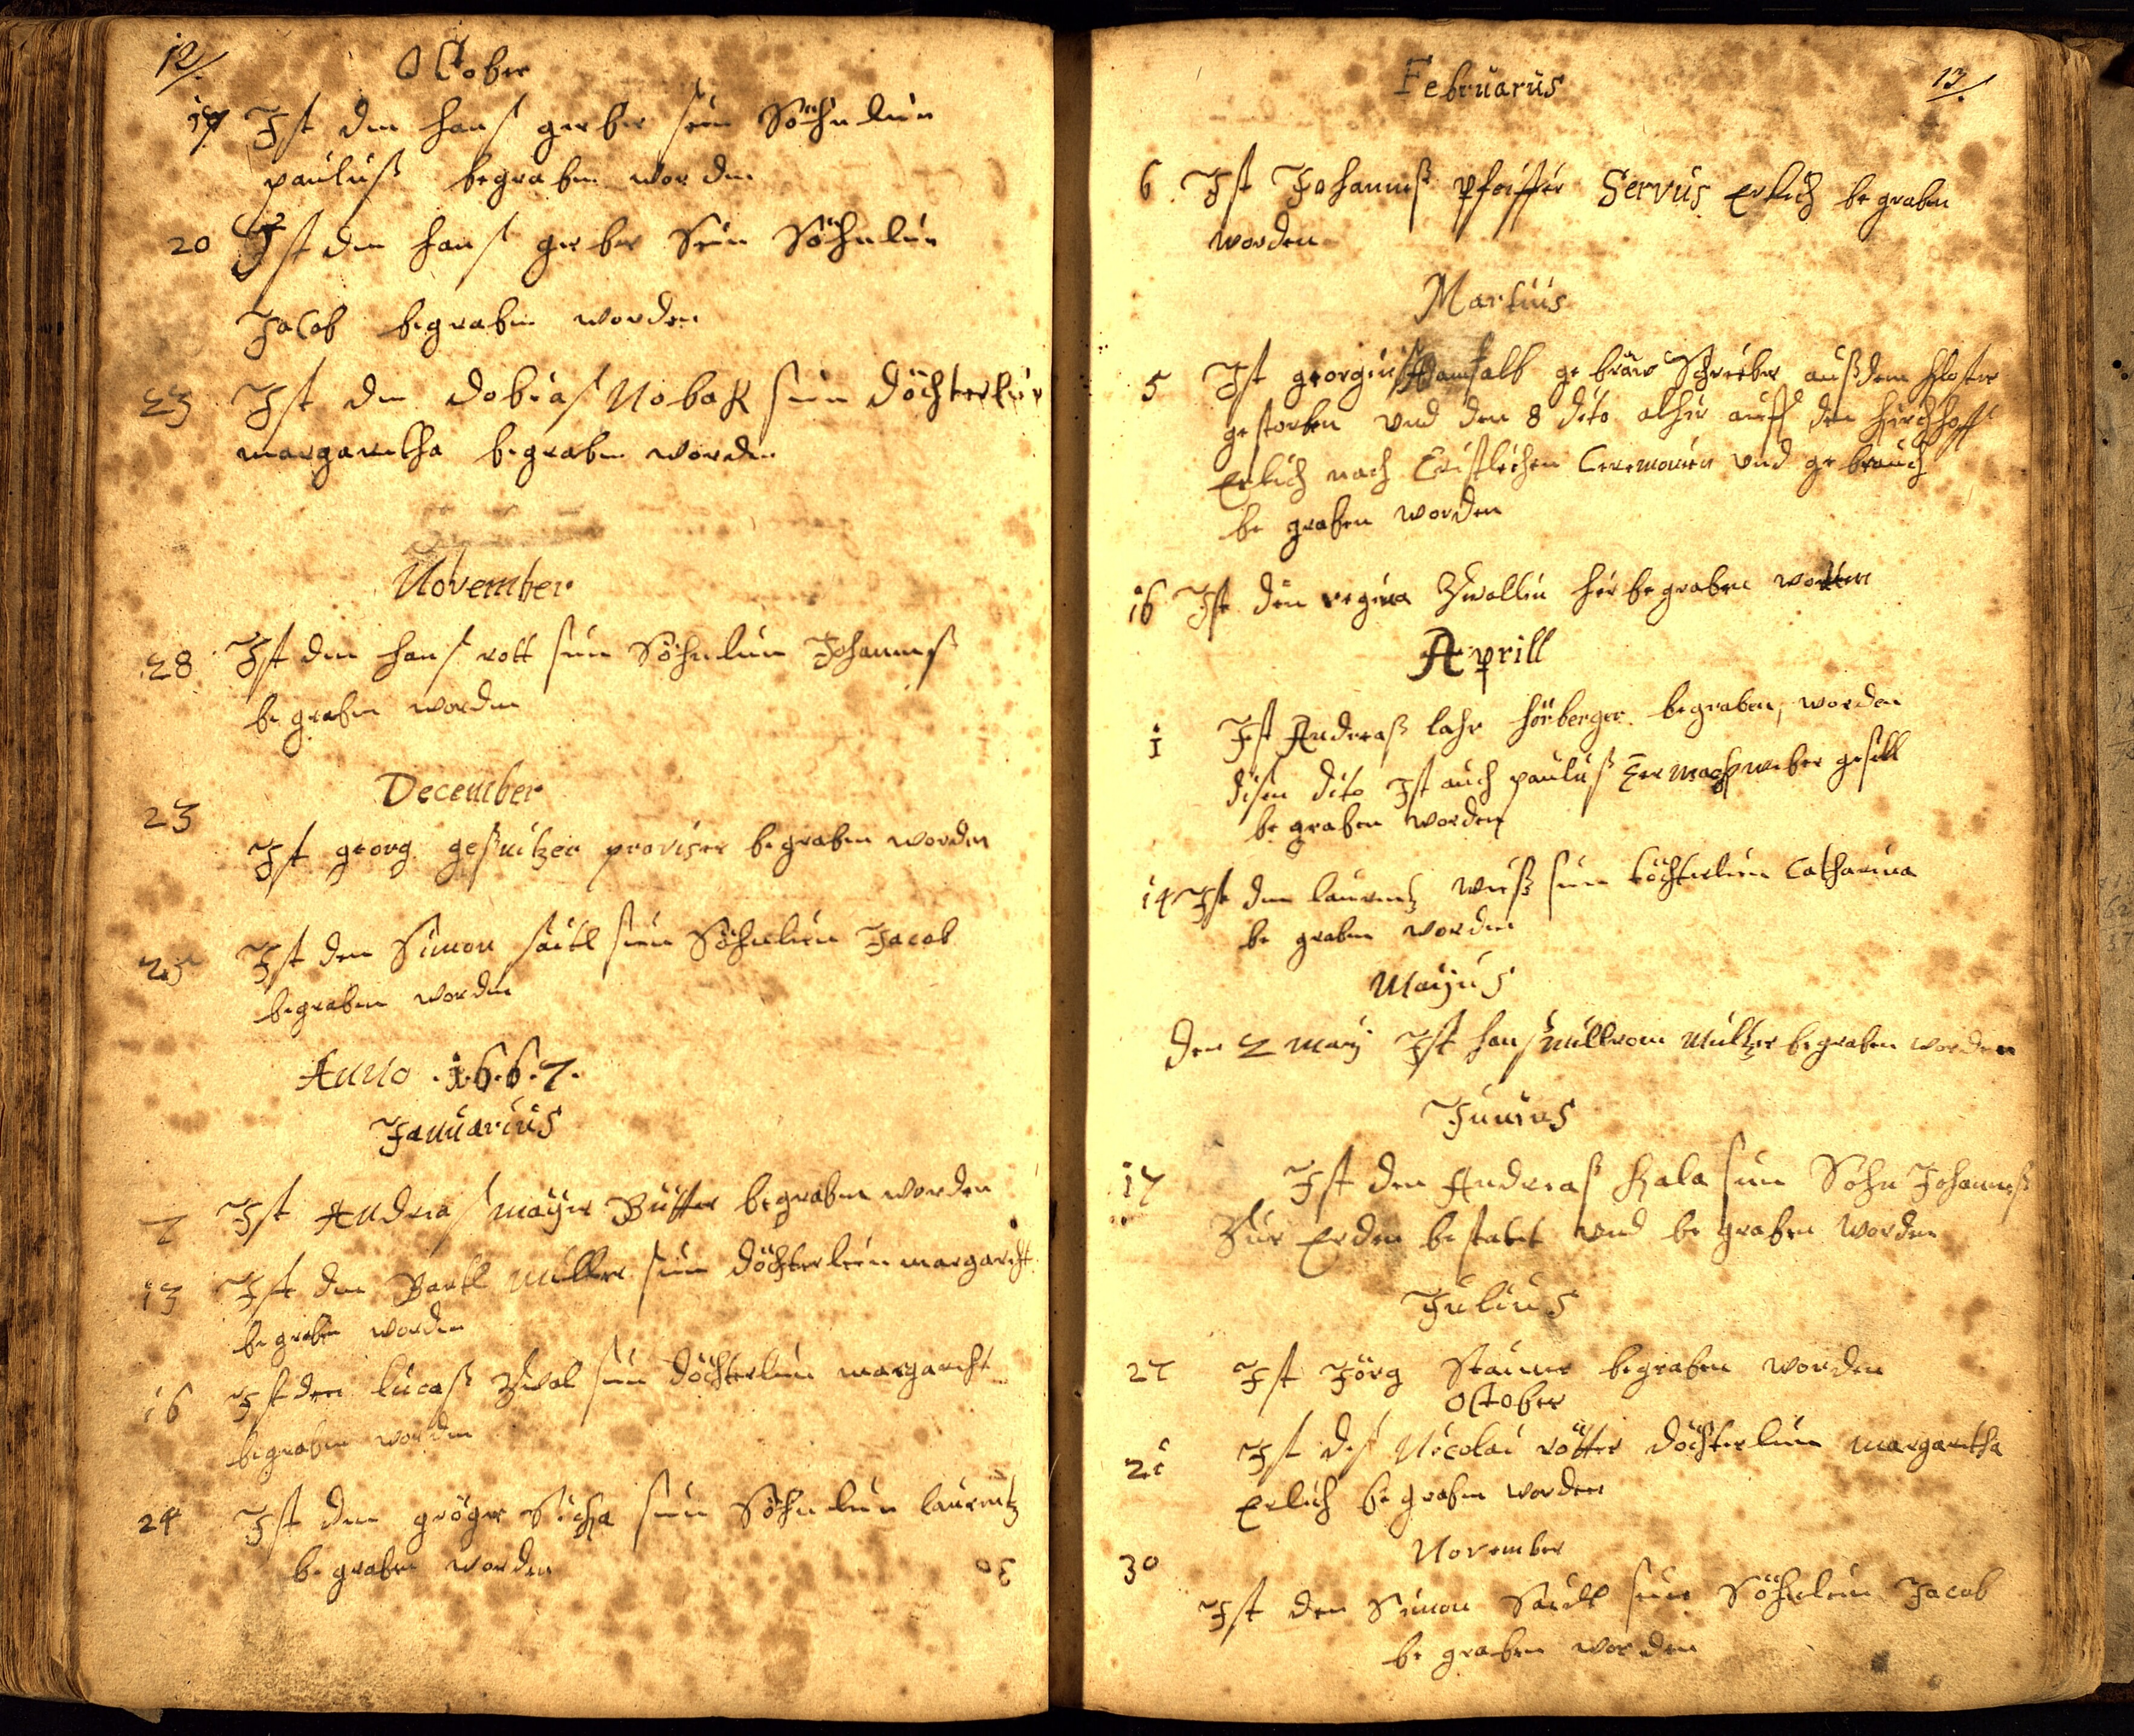 12/
October
17 Ist dem Hanß gerber sein Söhnlein
pauluß begraben worden
20 Ist dem Hanß gerber Sein Söhnlein
Jacob begraben worden
23 Ist dem Dobiaß Nobak sein Döchterlein
margaretha begraben worden
November
28 Ist dem Hanß rott sein Söhnlein Johanneß
begraben worden
December
23
Ist georg proviser begraben worden
25 Ist dem Simon saitl sein Söhnlein Jacob
begraben worden
Anno .1.6.6.7.
Januarius
7 Ist Andreaß mayer begraben worden
13 Ist dem Bartl müller sein Döchterlein margareht
begraben worden
16 Ist dem lucaß Zwol sein Döchterlein margareht
begraben worden
24 Ist dem gröger Sicha sein Söhnlein laurentz
begraben worden
13/
Februarus
6 Ist Johanneß pfeiffer Servus Erlich begraben
worden
Martius
5 Ist georgius ge bräw Schreiber auß dem Kloster
gestorben vnd den 8 dito alhir auff den Kirchhoff
Erlich nach Cristlichen Ceremonien vnd gebrauch
be graben worden
16 Ist den regina Zwollin hir begraben worden
Aprill
1 Ist Andreaß lahr herberger begraben worden
disen dito Ist auch pauluß weber gesell
be graben worden
14 Ist dem laurentz weiß sein töchterlein Catharina
be graben worden
Mayus
Den 2 may Ist Hanß begraben worden
Junius
17 Ist dem Andreaß Hala sein Sohn Johanneß
Zur Erden bestatet vnd be graben worden
Julius
27 Ist Jörg begraben worden
October
21 Ist deß Nicolai rötter Döchterlein margaretha
Erlich begraben worden
November
30
Ist dem Simon Saidl sein Söhnlein Jacob
be graben worden